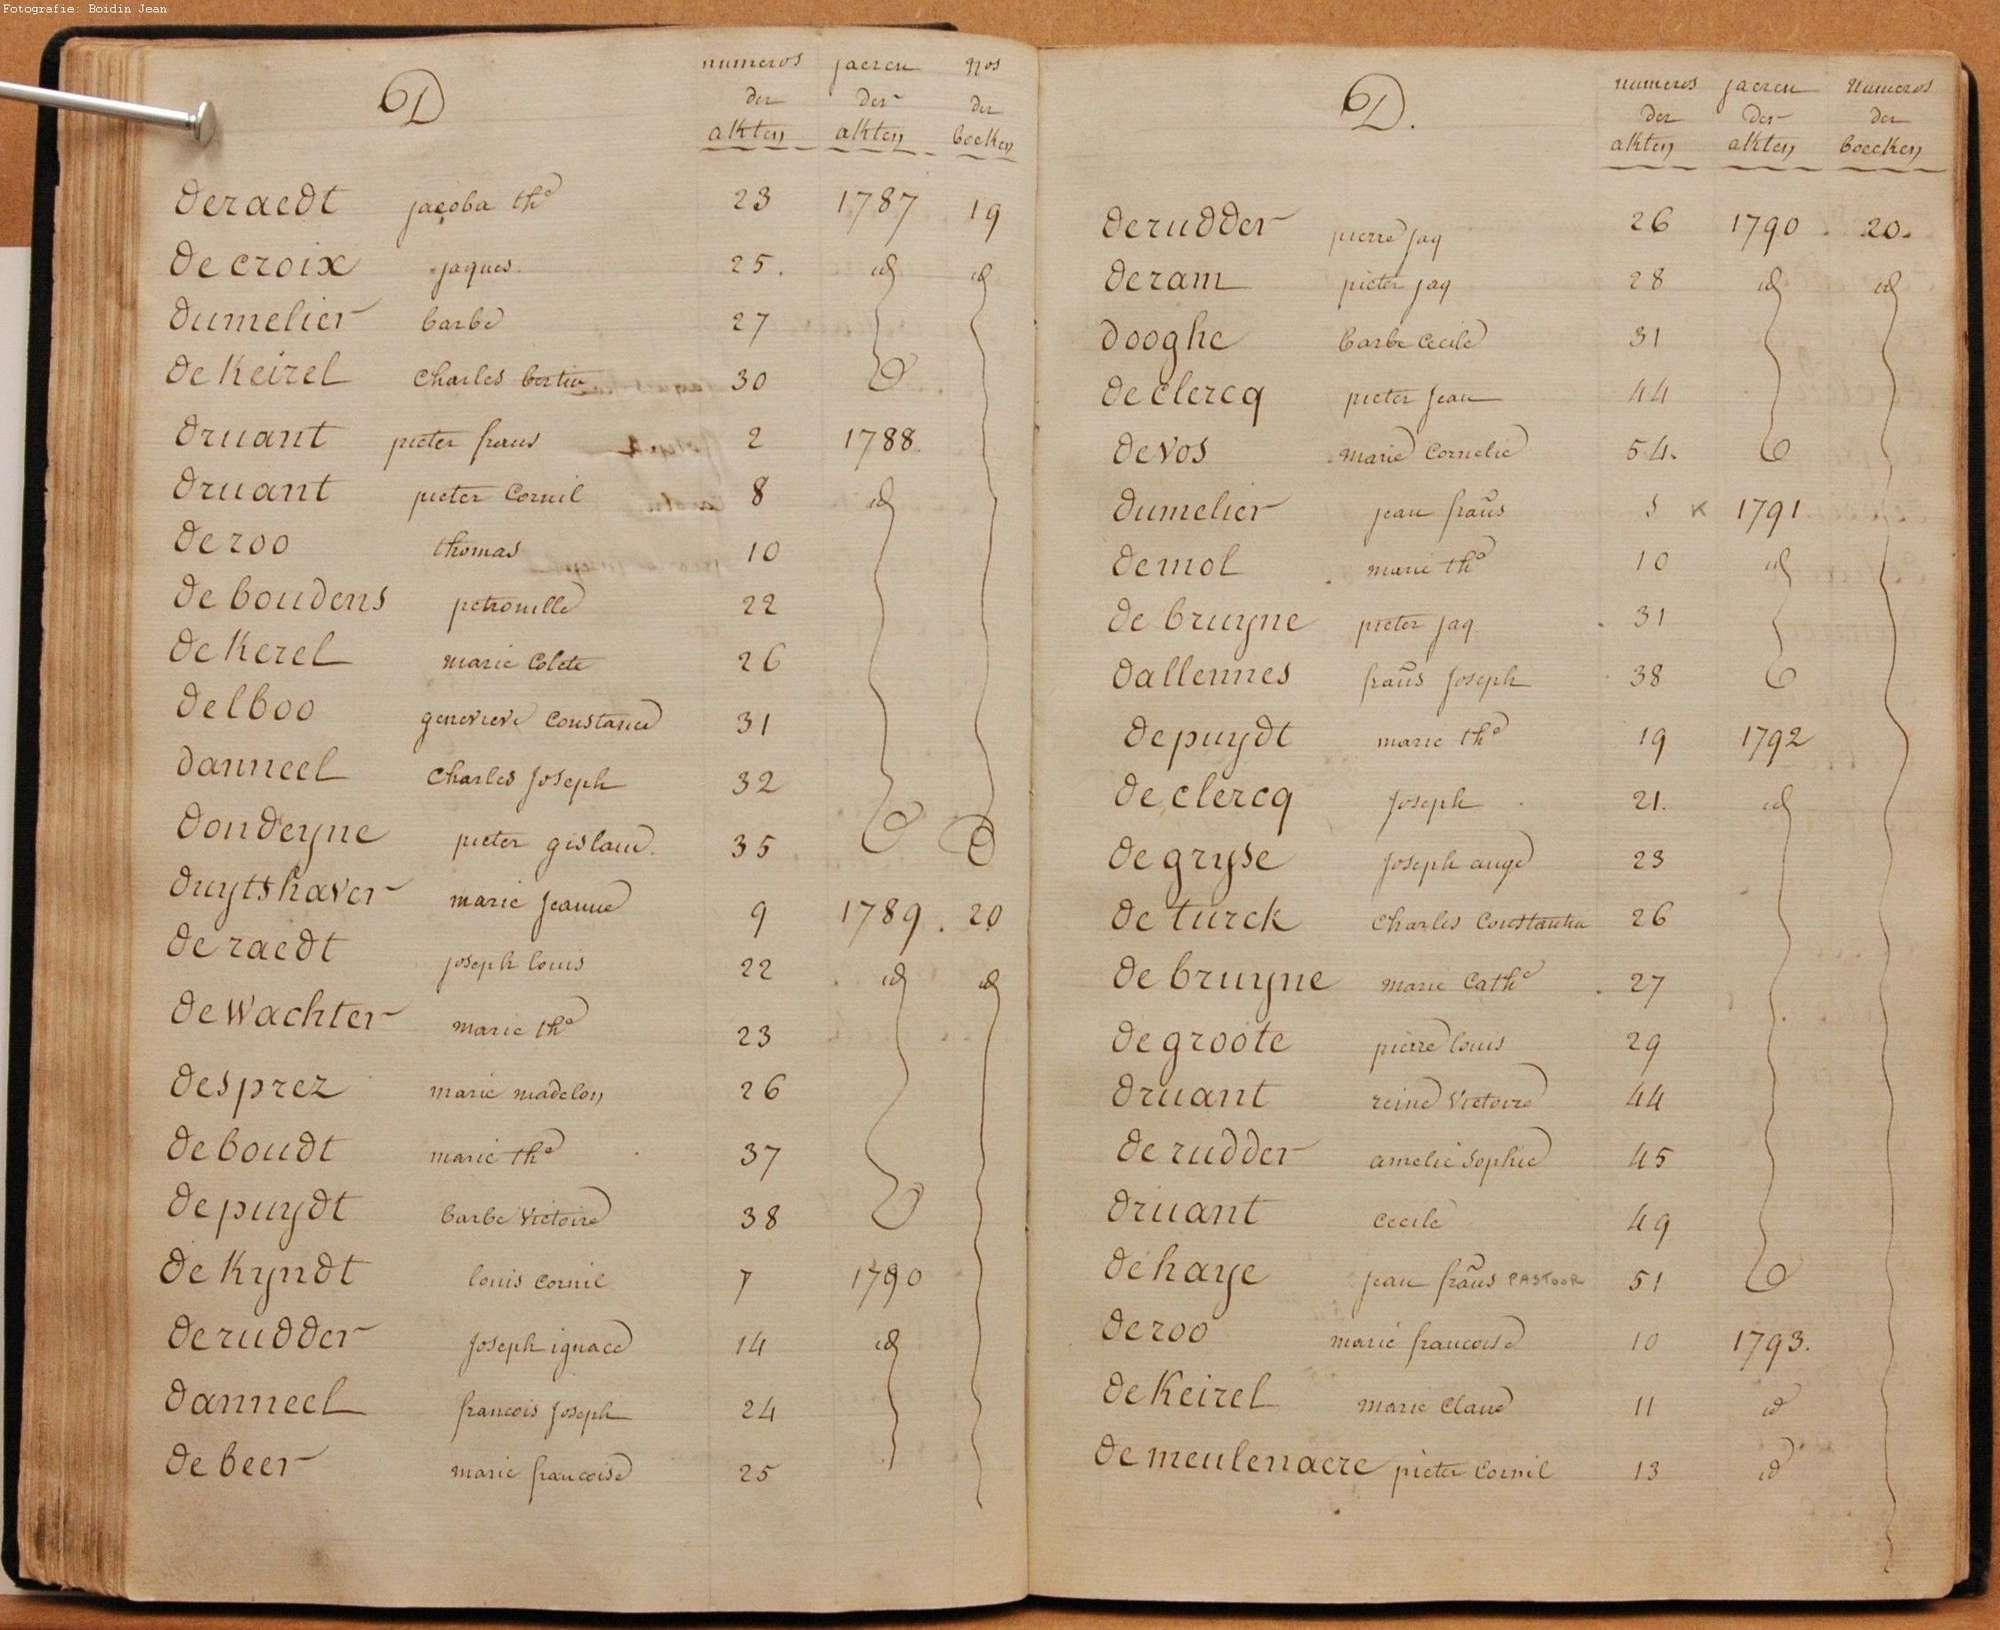 Fotografie: Boidin Jean
D
numeros jaeren nos
der der der
akten akten boeken
deraedt jacoba the 23 1787 19
decroix jaques 25. id id
dumelier barbe 27
dekeirel charles bertin 30
druant pieter frans 2 1788.
druant pieter cornil 8 id
deroo thomas 10
deboudens petronille 22
dekerel marie colete 26
delboo genevieve constance 31
danneel charles joseph 32
dondeyne pieter gislain 35
duytshaver marie jeanne 9 1789. 20
deraedt joseph louis 22 id id
dewachter marie the 23
desprez marie madelon 26
deboudt marie the 37
depuydt barbe victoire 38
dekyndt louis cornil 7 1790
derudder joseph ignace 14 id
danneel francois joseph 24
debeer marie francoise 25
D.
numeros jaeren numeros
der der der
akten akten boecken
derudder pierre jaq 26 1790 20.
deram pieter jaq 28 id id
dooghe barbe cecile 31
declercq pieter jean 44
devos marie cornelie 54.
dumelier jean frans 5 x 1791
demol marie the 10 id
debruyne pieter jaq 31
dallennes frans joseph 38
depuydt marie the 19 1792
declercq joseph 21. id
degryse joseph ange 23
deturck charles constantin 26
debruyne marie cathe 27
degroote pierre louis 29
druant reine victoire 44
derudder amelie sophie 45
druant cecile 49
dehaye jean frans PASTOOR 51
deroo marie francoise 10 1793.
dekeirel marie claud 11 id
demeulenaere pieter cornil 13 id